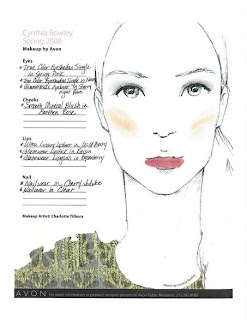 Cynthia Rowley
Spring 2008
Makeup by Avon
Eyes
True Color Eyeshadow Single
in Spring Pink
True Color Eyeshadow Single in
Glimmerstick Eyeliner in Starry
night Blue
Cheeks
Smooth Mineral Blush in
Lips
Ultra Luxury Lipliner in
Glazewear Lipstick in
Glazewear Lipgloss in
Nail
Nailwear in Cherry Jubilee
Nailwear in Clear
Makeup Artist: Charlotte Tilbury
AVON
For more information or product samples please call Avon Public Relations,